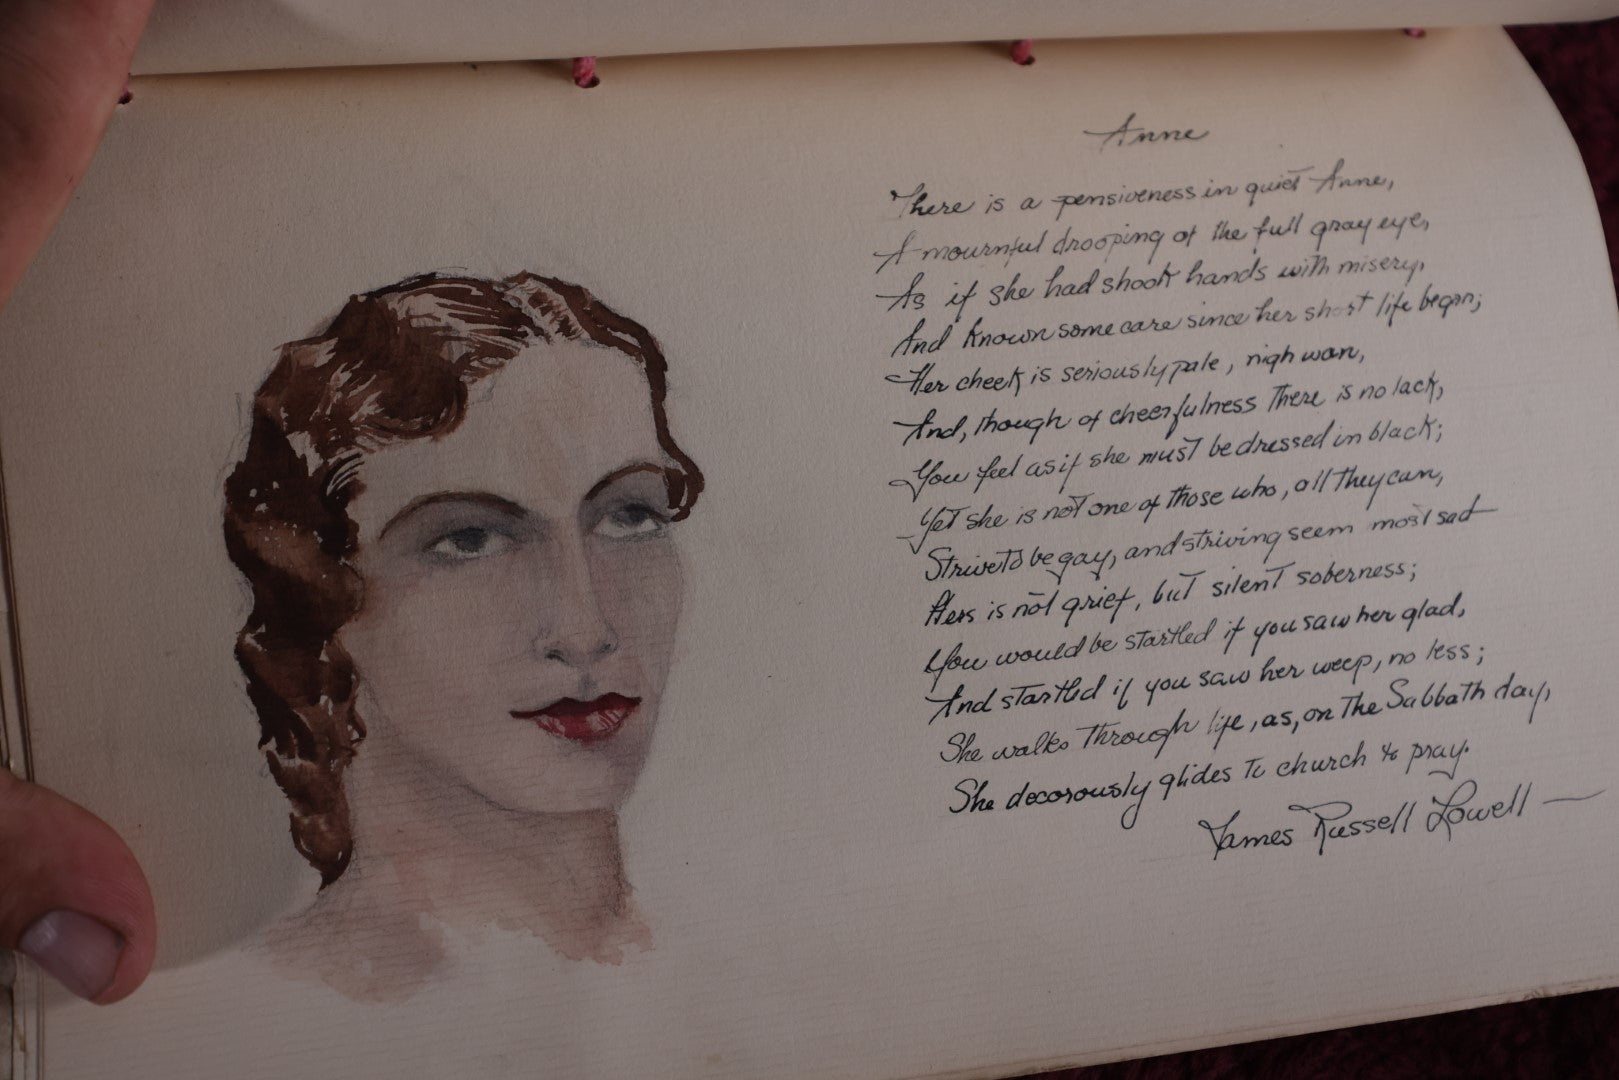 Anne
There is a pensiveness in quiet Anne,
A mournful drooping of the full gray eye,
As if she had shook hands with misery,
And known some care since her short life began;
Her cheek is seriously pale, nigh wan,
And, though of cheerfulness there is no lack,
You feel as if she must be dressed in black;
Yet she is not one of those who, all they can,
Strive to be gay, and striving seem most sad
Hers is not grief, but silent soberness;
You would be startled if you saw her glad,
And startled if you saw her weep, no less;
She walks through life, as, on the Sabbath day,
She decorously glides to church to pray.
James Russell Lowell —